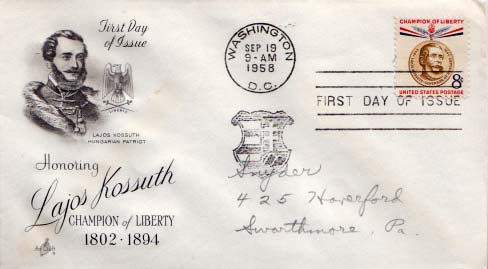 First Day
of Issue
LIBERTY
LAJOS KOSSUTH
HUNGARIAN PATRIOT
Honoring
Lajos Kossuth
CHAMPION of LIBERTY
1802 · 1894
Art Craft
WASHINGTON
SEP 19
9-AM
1958
D.C.
CHAMPION OF LIBERTY
8¢
UNITED STATES POSTAGE
FIRST DAY OF ISSUE
Snyder
425 Haverford
Swarthmore, Pa.